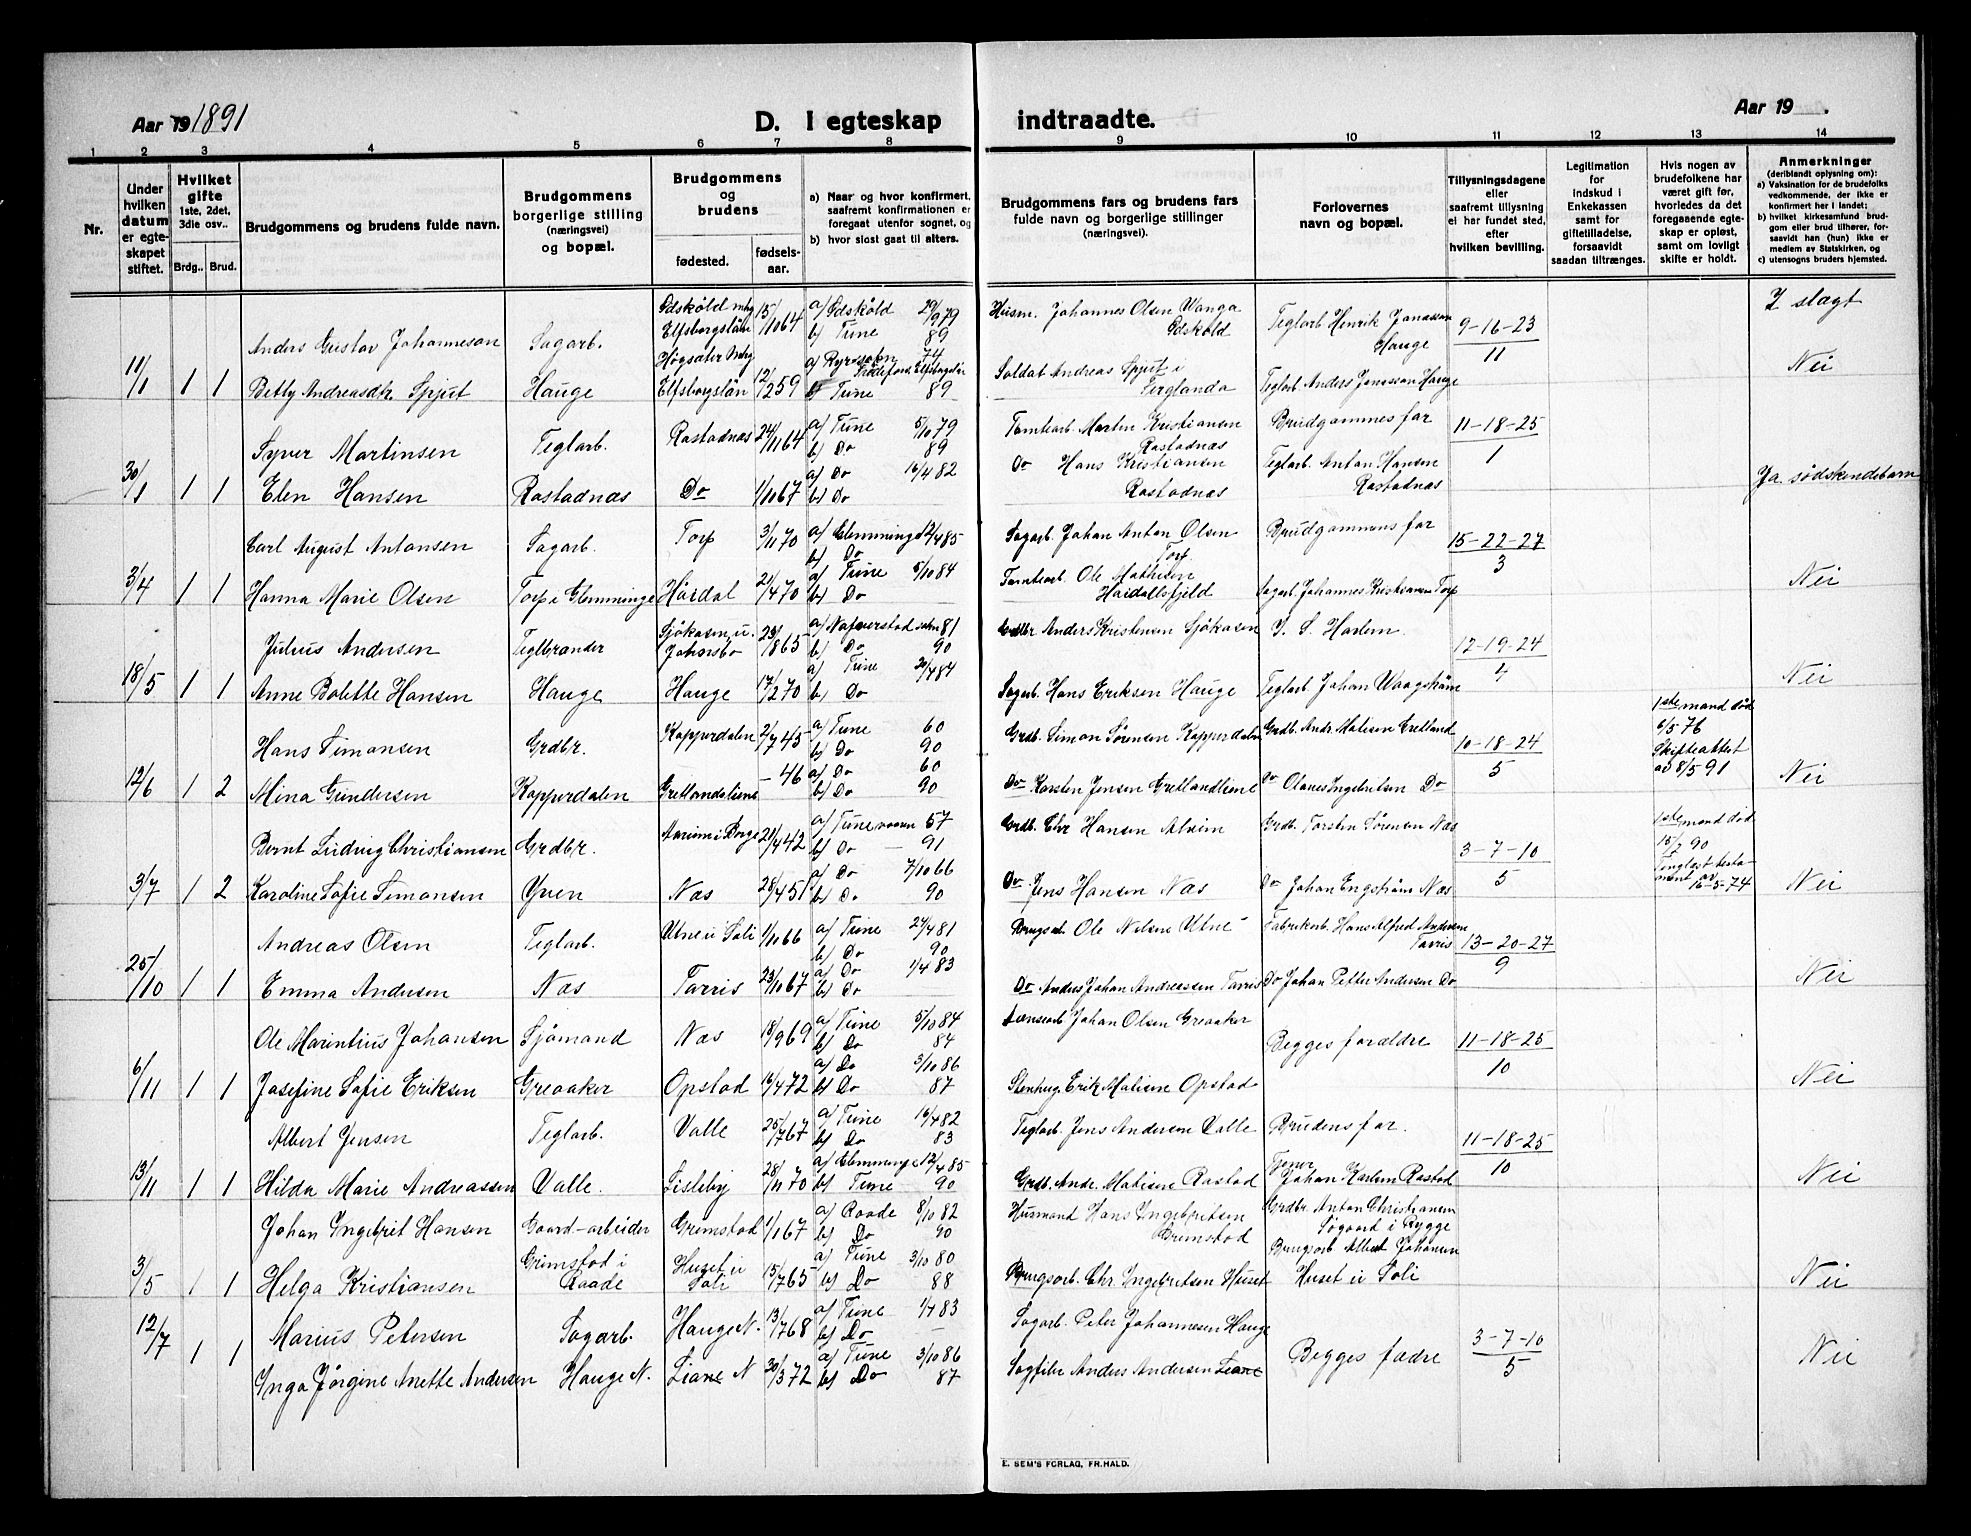 Aar 19 1891
D. I egteskap indtraadte.
Aar 19 .
1 2 3 4 5 6 7 8 9 10 11 12 13 14
Nr.
Under hvilken datum er egteskapet stiftet.
Hvilket gifte 1ste, 2det, 3die osv..
Brdg.. Brud.
Brudgommens og brudens fulde navn.
Brudgommens borgerlige stilling (næringsvei) og bopæl.
Brudgommens og brudens
fødested. fødselsaar.
a) Naar og hvor konfirmert, saafremt konfirmationen er foregaaet utenfor sognet, og
b) hvor sidst gaat til alters.
Brudgommens fars og brudens fars fulde navn og borgerlige stillinger (næringsvei).
Forlovernes navn og bopæl.
Tillysningsdagene eller saafremt tillysning ei har fundet sted, efter hvilken bevilling.
Legitimation for indskud i Enkekassen samt for giftetilladelse, forsaavidt saadan tiltrænges.
Hvis nogen av brudefolkene har været gift før, hvorledes da det foregaaende egteskap er opløst, samt om lovligt skifte er holdt.
Anmerkninger (deriblandt oplysning om):
a) Vaksination for de brudefolks vedkommende, der ikke er konfirmert her i landet;
b) hvilket kirkesamfund brudgom eller brud tilhører, forsaavidt han (hun) ikke er medlem av Statskirken, og
c) utensogns bruders hjemsted.
Anders Gustav Johanneson Sagarb. Ødskøld Elfsborgslän 15/10 64 a) Ødskøld 29/9 79 b) Tune 89 Husm. Johannes Olsen Wanga Ødskøld Teglarb Henrik Jonasson Hauge 9-16-23/11 I slægt
11/1 1 1 Betty Andreasdtr. Spjut Hauge Högsäter Elfsborgslän 12/2 59 b) Tune 89 Soldat Andreas Spjut i Ferglanda Teglarb Anders Jonasson Hauge Nei
Syver Martinsen Teglarb. Rostadnæs 24/11 64 a) Tune 5/10 79 b) Do 89 Tomtearb. Martin Kristiansen Rostadnæs Brudgommes far 11-18-25/1
30/1 1 1 Elen Hansen Rostadnæs Do 1/10 67 a) Do 16/4 82 b) Do Do Hans Kristiansen Rostadnæs Teglarb. Anton Hansen Rostadnæs Ja sødskendebarn
Carl August Antonsen Sagarb. Torp 3/11 70 a) Glemminge 12/4 85 b) Do Sagarb. Johan Anton Olsen Torp Brudgommens far 15-22-27/3
3/4 1 1 Hanna Marie Olsen Torp i Glemminge Haidal 21/4 70 a) Tune 5/10 84 b) Do Tomtearb. Ole Mathisen Haidalsfjeld Sagarb. Johannes Kristiansen Torp Nei
Julius Andersen Teglbrænder Sjökasen u. Johansbo 23/1 865 a) Nafverstad sokn 81 b) Do 90 Grdbr Anders Kristensen Sjökasen J. S. Harlem. 12-19-24/4
18/5 1 1 Anne Bolette Hansen Hauge Hauge 17/2 70 a) Tune 20/4 84 b) Do Sagarb. Hans Eriksen Hauge Teglarb. Johan Waagstrøm Nei
Hans Simonsen Grdbr. Kopperdalen 2/7 45 a) Tune 60 b) Do 90 Grdb. Simon Sørensen Kopperdalen Grdb. Andr. Matisen Gretland 10-18-24/5 1ste mand død 6/5 76 Skifteattest av 8/5 91
12/6 1 2 Mina Gundersen Kopperdalen Gretlandsliene - 46 a) Do 60 b) Do 90 Do Karsten Jensen Gretlandliene Do Olaves Ingebritsen Do Nei
Bernt Ludvig Christiansen Grdbr. i Borge 21/4 42 a) Tune 57 b) Do - 91 Grdb. Chr Hansen Alvim Grdb. Torsten Sørensen Næs 3-7-10/5 1ste mand død 15/7 90 Tinglæst testament av 16-5-74
3/7 1 2 Karoline Sofie Simonsen Yven Næs 28/4 51 a) Do 7/10 66 b) Do 90 Do Jens Hansen Næs Do Johan Engstrøm Næs Nei
Andreas Olsen Teglarb. Utne i Soli 1/10 66 a) Tune 24/4 81 b) Do 90 Brugsarb. Ole Nilsen Utne Fabrikarb. Hans Alfred Andersen Tarris 13-20-27/9
25/10 1 1 Emma Andersen Næs Tarris 23/10 67 a) Do 1/4 83 b) Do Do Anders Johan Andreassen Tarris Do Johan Petter Andersen Do Nei
Ole Marintius Johansen Sjømand Næs 18/9 69 a) Tune 5/10 84 b) Do 84 Johan Olsen Greaaker Begges forældre 11-18-25/10
6/11 1 1 Josefine Sofie Eriksen Greaaker Opstad 16/4 72 a) Do 3/10 86 b) Do 87 Stenhug. Erik Matisen Opstad Nei
Albert Jensen Teglarb. Valle 25/7 67 a) Tune 16/4 82 b) Do 83 Teglarb. Jens Andersen Valle Brudens far. 11-18-25/10
13/11 1 1 Hilda Marie Andreassen Valle. Lisleby 28/11 70 a) Glemminge 12/4 85 b) Tune 90 Grdb. Andr. Matisen Rostad Tjener Johan Karlsen Rostad Nei
Johan Ingebrit Hansen Gaard-arbeider Grimstad 1/1 67 a) Raade 8/10 82 b) Do 90 Husmand Hans Ingebritsen Grimstad Grdbr Anton Christiansen Søgaard i Rygge
3/5 1 1 Helga Kristiansen Grimstad i Raade Huset i Soli 15/7 65 a) Tune 3/10 80 b) Do 88 Brugsarb. Chr. Ingebritsen Huset Brugsarb Albert Johansen Huset i Soli Nei
Marius Petersen Sagarb. Hauge N. 13/7 68 a) Tune 1/4 83 b) Do - Sagarb. Peter Johannesen Hauge 3-7-10/5
12/7 1 1 Inga Jørgine Anette Andersen Hauge N. Liane N 30/3 72 a) Tune 3/10 86 b) Do 87 Sagfiler Anders Andersen Liane Begges fædre Nei
E. SEM'S FORLAG, FR.HALD.